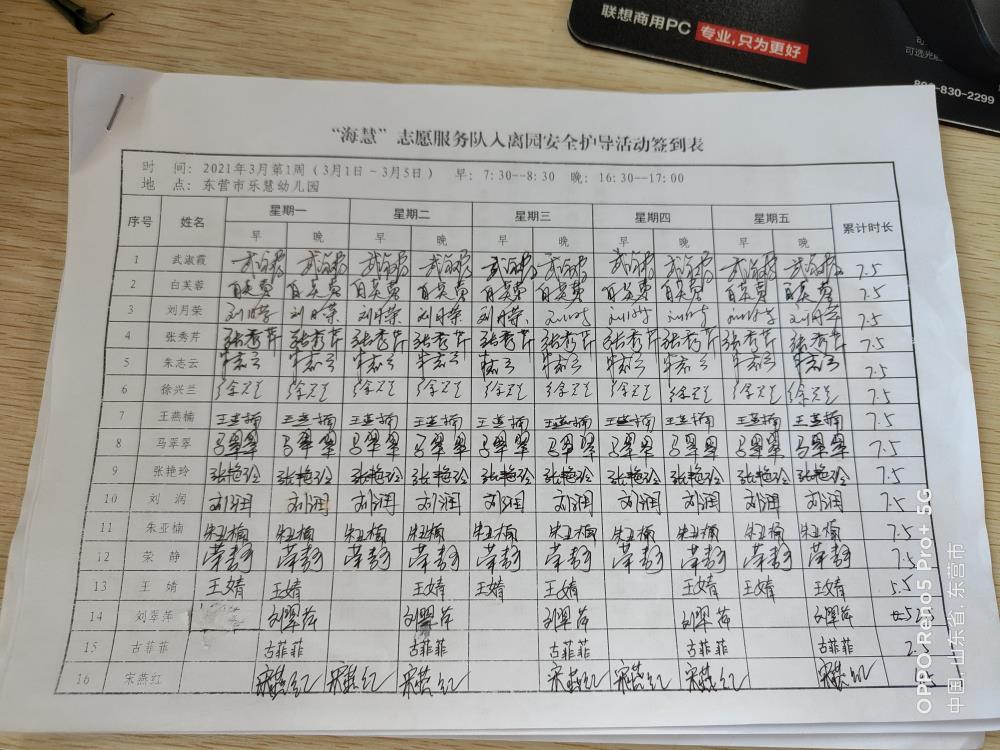 联想商用PC 专业,只为更好
830-2299
"海慧"志愿服务队入离园安全护导活动签到表
时 间: 2021年3月第1周(3月1日~3月5日) 早: 7:30--8:30 晚: 16:30--17:00
地 点: 东营市乐慧幼儿园
序号 姓名 星期一 星期二 星期三 星期四 星期五 累计时长
早 晚 早 晚 早 晚 早 晚 早 晚
1 武淑霞 武淑霞 武淑霞 武淑霞 武淑霞 武淑霞 武淑霞 武淑霞 武淑霞 武淑霞 武淑霞 7.5
2 白芙蓉 白芙蓉 白芙蓉 白芙蓉 白芙蓉 白芙蓉 白芙蓉 白芙蓉 白芙蓉 白芙蓉 白芙蓉 7.5
3 刘月荣 刘月荣 刘月荣 刘月荣 刘月荣 刘月荣 刘月荣 刘月荣 刘月荣 刘月荣 刘月荣 7.5
4 张秀芹 张秀芹 张秀芹 张秀芹 张秀芹 张秀芹 张秀芹 张秀芹 张秀芹 张秀芹 张秀芹 7.5
5 朱志云 朱志云 朱志云 朱志云 朱志云 朱志云 朱志云 朱志云 朱志云 朱志云 朱志云 7.5
6 徐兴兰 徐兴兰 徐兴兰 徐兴兰 徐兴兰 徐兴兰 徐兴兰 徐兴兰 徐兴兰 徐兴兰 徐兴兰 7.5
7 王燕楠 王燕楠 王燕楠 王燕楠 王燕楠 王燕楠 王燕楠 王燕楠 王燕楠 王燕楠 王燕楠 7.5
8 马翠翠 马翠翠 马翠翠 马翠翠 马翠翠 马翠翠 马翠翠 马翠翠 马翠翠 马翠翠 马翠翠 7.5
9 张艳玲 张艳玲 张艳玲 张艳玲 张艳玲 张艳玲 张艳玲 张艳玲 张艳玲 张艳玲 张艳玲 7.5
10 刘 润 刘润 刘润 刘润 刘润 刘润 刘润 刘润 刘润 刘润 刘润 7.5
11 朱亚楠 朱亚楠 朱亚楠 朱亚楠 朱亚楠 朱亚楠 朱亚楠 朱亚楠 朱亚楠 朱亚楠 朱亚楠 7.5
12 荣 静 荣静 荣静 荣静 荣静 荣静 荣静 荣静 荣静 荣静 荣静 7.5
13 王 婧 王婧 王婧 王婧 王婧 王婧 王婧 王婧 王婧 5.5
14 刘翠萍 刘翠萍 刘翠萍 刘翠萍 刘翠萍 刘翠萍
15 古菲菲 古菲菲 古菲菲 古菲菲 古菲菲 古菲菲 2.5
16 宋燕红 宋燕红 宋燕红 宋燕红 宋燕红 宋燕红 宋燕红 宋燕红
OPPO Reno5 Pro+ 5G
中国,山东省,东营市